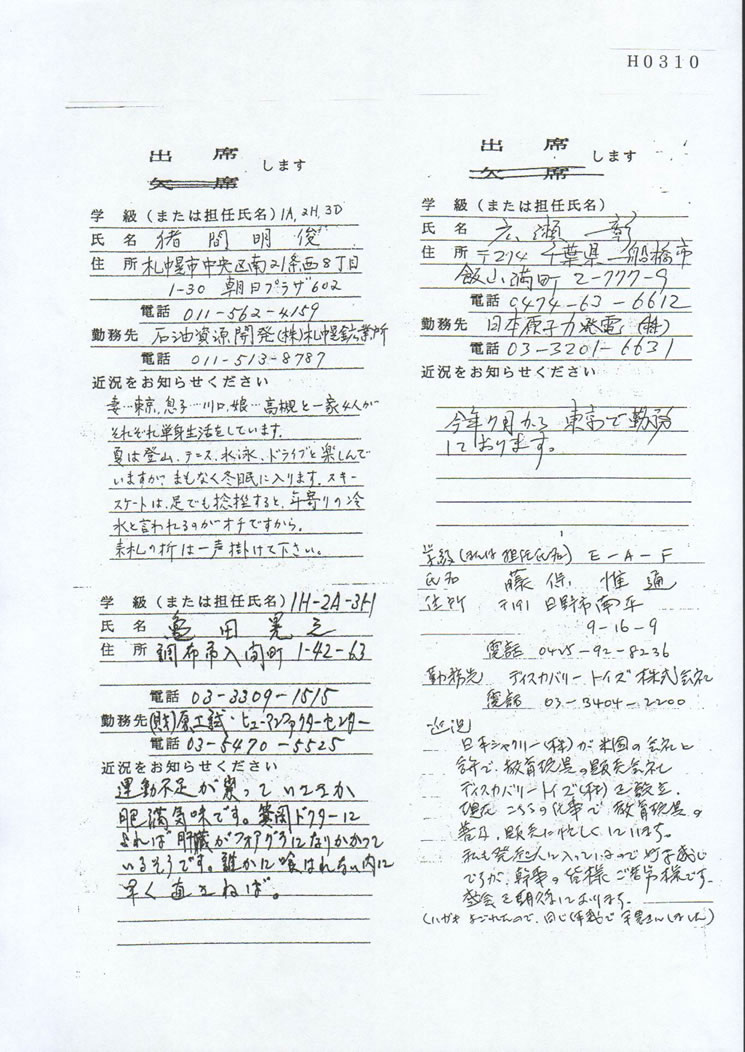 H0310
出席
欠席
します
学 級（または担任氏名）1A, 2H, 3D
氏 名 猪間明俊
住 所 札幌市中央区南21条西8丁目
1-30 朝日プラザ602
電話 011-562-4159
勤務先 石油資源開発(株)札幌鉱業所
電話 011-513-8787
近況をお知らせください
妻…東京、息子…川口、娘…高槻と一家4人が
それぞれ単身生活をしています。
夏は登山、テニス、水泳、ドライブと楽しんで
いますが、まもなく冬眠に入ります。スキー
スケートは、足でも捻挫すると、年寄りの冷
水と言われるのがオチですから。
来札の折は一声掛けて下さい。
学 級（または担任氏名）1H-2A-3H
氏 名 亀田晃之
住 所 調布市入間町 1-42-63
電話 03-3309-1515
勤務先 (財)・ヒューマンファクターセンター
電話 03-5470-5525
近況をお知らせください
運動不足が祟って いささか
肥満気味です。ドクターに
よれば 肝臓がフォアグラになりかかって
いるそうです。誰かに喰はれない内に
早く直さねば。
出席
欠席
します
学 級（または担任氏名）
氏 名 広瀬 彰
住 所 〒274 千葉県船橋市
飯山満町 2-777-9
電話 0474-63-6612
勤務先 日本原子力発電(株)
電話 03-3201-6631
近況をお知らせください
今年7月から 東京で勤務
しております。
学級(または担任氏名) E-A-F
氏名 藤原 惟通
住所 〒191 日野市南平
9-16-9
電話 0425-92-8236
勤務先 ディスカバリートイズ株式会社
電話 03-3404-2200
近況
日本シャクリー(株)が米国の会社と
で、教育玩具の販売会社
ディスカバリートイズ(株)を設立、
現在こちらの仕事で教育玩具の
、販売に忙しくしています。
私も発起人に入っているので
ですが、幹事の皆様ご苦労様です。
盛会を期待しております。
(ハガキよごれたので、同じで しました)